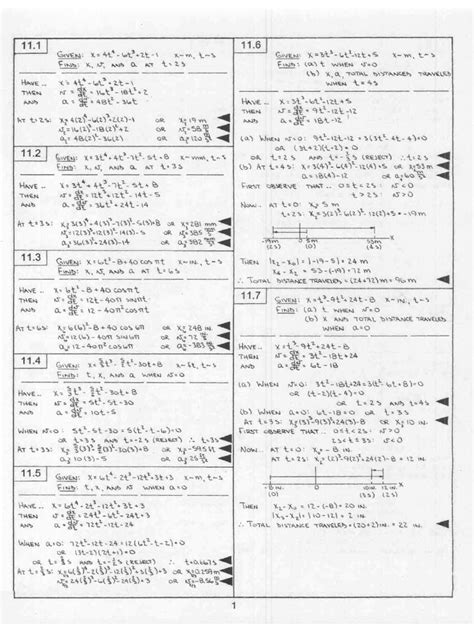 11.1
GIVEN: x=4t⁴-6t³+2t-1 x~m, t~s
FIND: x, v, AND a AT t=2s
HAVE.. x=4t⁴-6t³+2t-1
THEN v=dx/dt=16t³-18t²+2
AND a=dv/dt=48t²-36t
AT t=2s: x=4(2)⁴-6(2)³+2(2)-1 OR x=19 m
v=16(2)³-18(2)²+2 OR v=58 m/s
a=48(2)²-36(2) OR a=120 m/s²
11.2
GIVEN: x=3t⁴+4t³-7t²-5t+8 x~mm, t~s
FIND: x, v, AND a AT t=3s
HAVE.. x=3t⁴+4t³-7t²-5t+8
THEN v=dx/dt=12t³+12t²-14t-5
AND a=dv/dt=36t²+24t-14
AT t=3s: x=3(3)⁴+4(3)³-7(3)²-5(3)+8 OR x=281 mm
v=12(3)³+12(3)²-14(3)-5 OR v=385 mm/s
a=36(3)²+24(3)-14 OR a=382 mm/s²
11.3
GIVEN: x=6t²-8+40 cos πt x~in., t~s
FIND: x, v, AND a AT t=6s
HAVE.. x=6t²-8+40 cos πt
THEN v=dx/dt=12t-40π sin πt
AND a=dv/dt=12-40π² cos πt
AT t=6s: x=6(6)²-8+40 cos 6π OR x=248 in.
v=12(6)-40π sin 6π OR v=72 in./s
a=12-40π² cos 6π OR a=-383 in./s²
11.4
GIVEN: x=5/3t³-5/2t²-30t+8 x~ft, t~s
FIND: t, x, AND a WHEN v=0
HAVE.. x=5/3t³-5/2t²-30t+8
THEN v=dx/dt=5t²-5t-30
AND a=dv/dt=10t-5
WHEN v=0: 5t²-5t-30=5(t²-t-6)=0
OR t=3s AND t=-2s (REJECT) ∴ t=3s
AT t=3s: x=5/3(3)³-5/2(3)²-30(3)+8 OR x=-59.5 ft
a=10(3)-5 OR a=25 ft/s²
11.5
GIVEN: x=6t⁴-2t³-12t²+3t+3 x~m, t~s
FIND: t, x, AND v WHEN a=0
HAVE.. x=6t⁴-2t³-12t²+3t+3
THEN v=dx/dt=24t³-6t²-24t+3
AND a=dv/dt=72t²-12t-24
WHEN a=0: 72t²-12t-24=12(6t²-t-2)=0
OR (3t-2)(2t+1)=0
OR t=2/3s AND t=-1/2s (REJECT) ∴ t=0.667s
AT t=2/3s: x=6(2/3)⁴-2(2/3)³-12(2/3)²+3(2/3)+3 OR x=0.259 m
v=24(2/3)³-6(2/3)²-24(2/3)+3 OR v=-8.56 m/s
11.6
GIVEN: x=3t³-6t²-12t+5 x~m, t~s
FIND: (a) t WHEN v=0
(b) x, a, TOTAL DISTANCE TRAVELED
WHEN t=4s
HAVE.. x=3t³-6t²-12t+5
THEN v=dx/dt=9t²-12t-12
AND a=dv/dt=18t-12
(a) WHEN v=0: 9t²-12t-12=3(3t²-4t-4)=0
OR (3t+2)(t-2)=0
OR t=2s AND t=-2/3s (REJECT) ∴ t=2s
(b) AT t=4s: x=3(4)³-6(4)²-12(4)+5 OR x=53 m
a=18(4)-12 OR a=60 m/s²
FIRST OBSERVE THAT.. 0≤t<2s: v<0
t>2s: v>0
NOW.. AT t=0: x₀=5 m
t=2s: x₂=3(2)³-6(2)²-12(2)+5=-19 m
-19m 0 5m 53m x
(2s) (0s) (4s)
THEN |x₂-x₀|=|-19-5|=24 m
x₄-x₂=53-(-19)=72 m
∴ TOTAL DISTANCE TRAVELED=(24+72)m=96 m
11.7
GIVEN: x=t³-9t²+24t-8 x~in., t~s
FIND: (a) t WHEN v=0
(b) x AND TOTAL DISTANCE TRAVELED
WHEN a=0
HAVE.. x=t³-9t²+24t-8
THEN v=dx/dt=3t²-18t+24
AND a=dv/dt=6t-18
(a) WHEN v=0: 3t²-18t+24=3(t²-6t+8)=0
OR (t-2)(t-4)=0
OR t=2s AND t=4s
(b) WHEN a=0: 6t-18=0 OR t=3s
AT t=3s: x₃=(3)³-9(3)²+24(3)-8 OR x₃=10 in.
FIRST OBSERVE THAT.. 0≤t<2s: v>0
2s<t≤3s: v<0
NOW.. AT t=0: x₀=-8 in.
AT t=2s: x₂=(2)³-9(2)²+24(2)-8=12 in.
-8in. 0 10in. 12in. x
(0s) (3s) (2s)
THEN x₂-x₀=12-(-8)=20 in.
|x₃-x₂|=|10-12|=2 in.
∴ TOTAL DISTANCE TRAVELED=(20+2)in.=22 in.
1